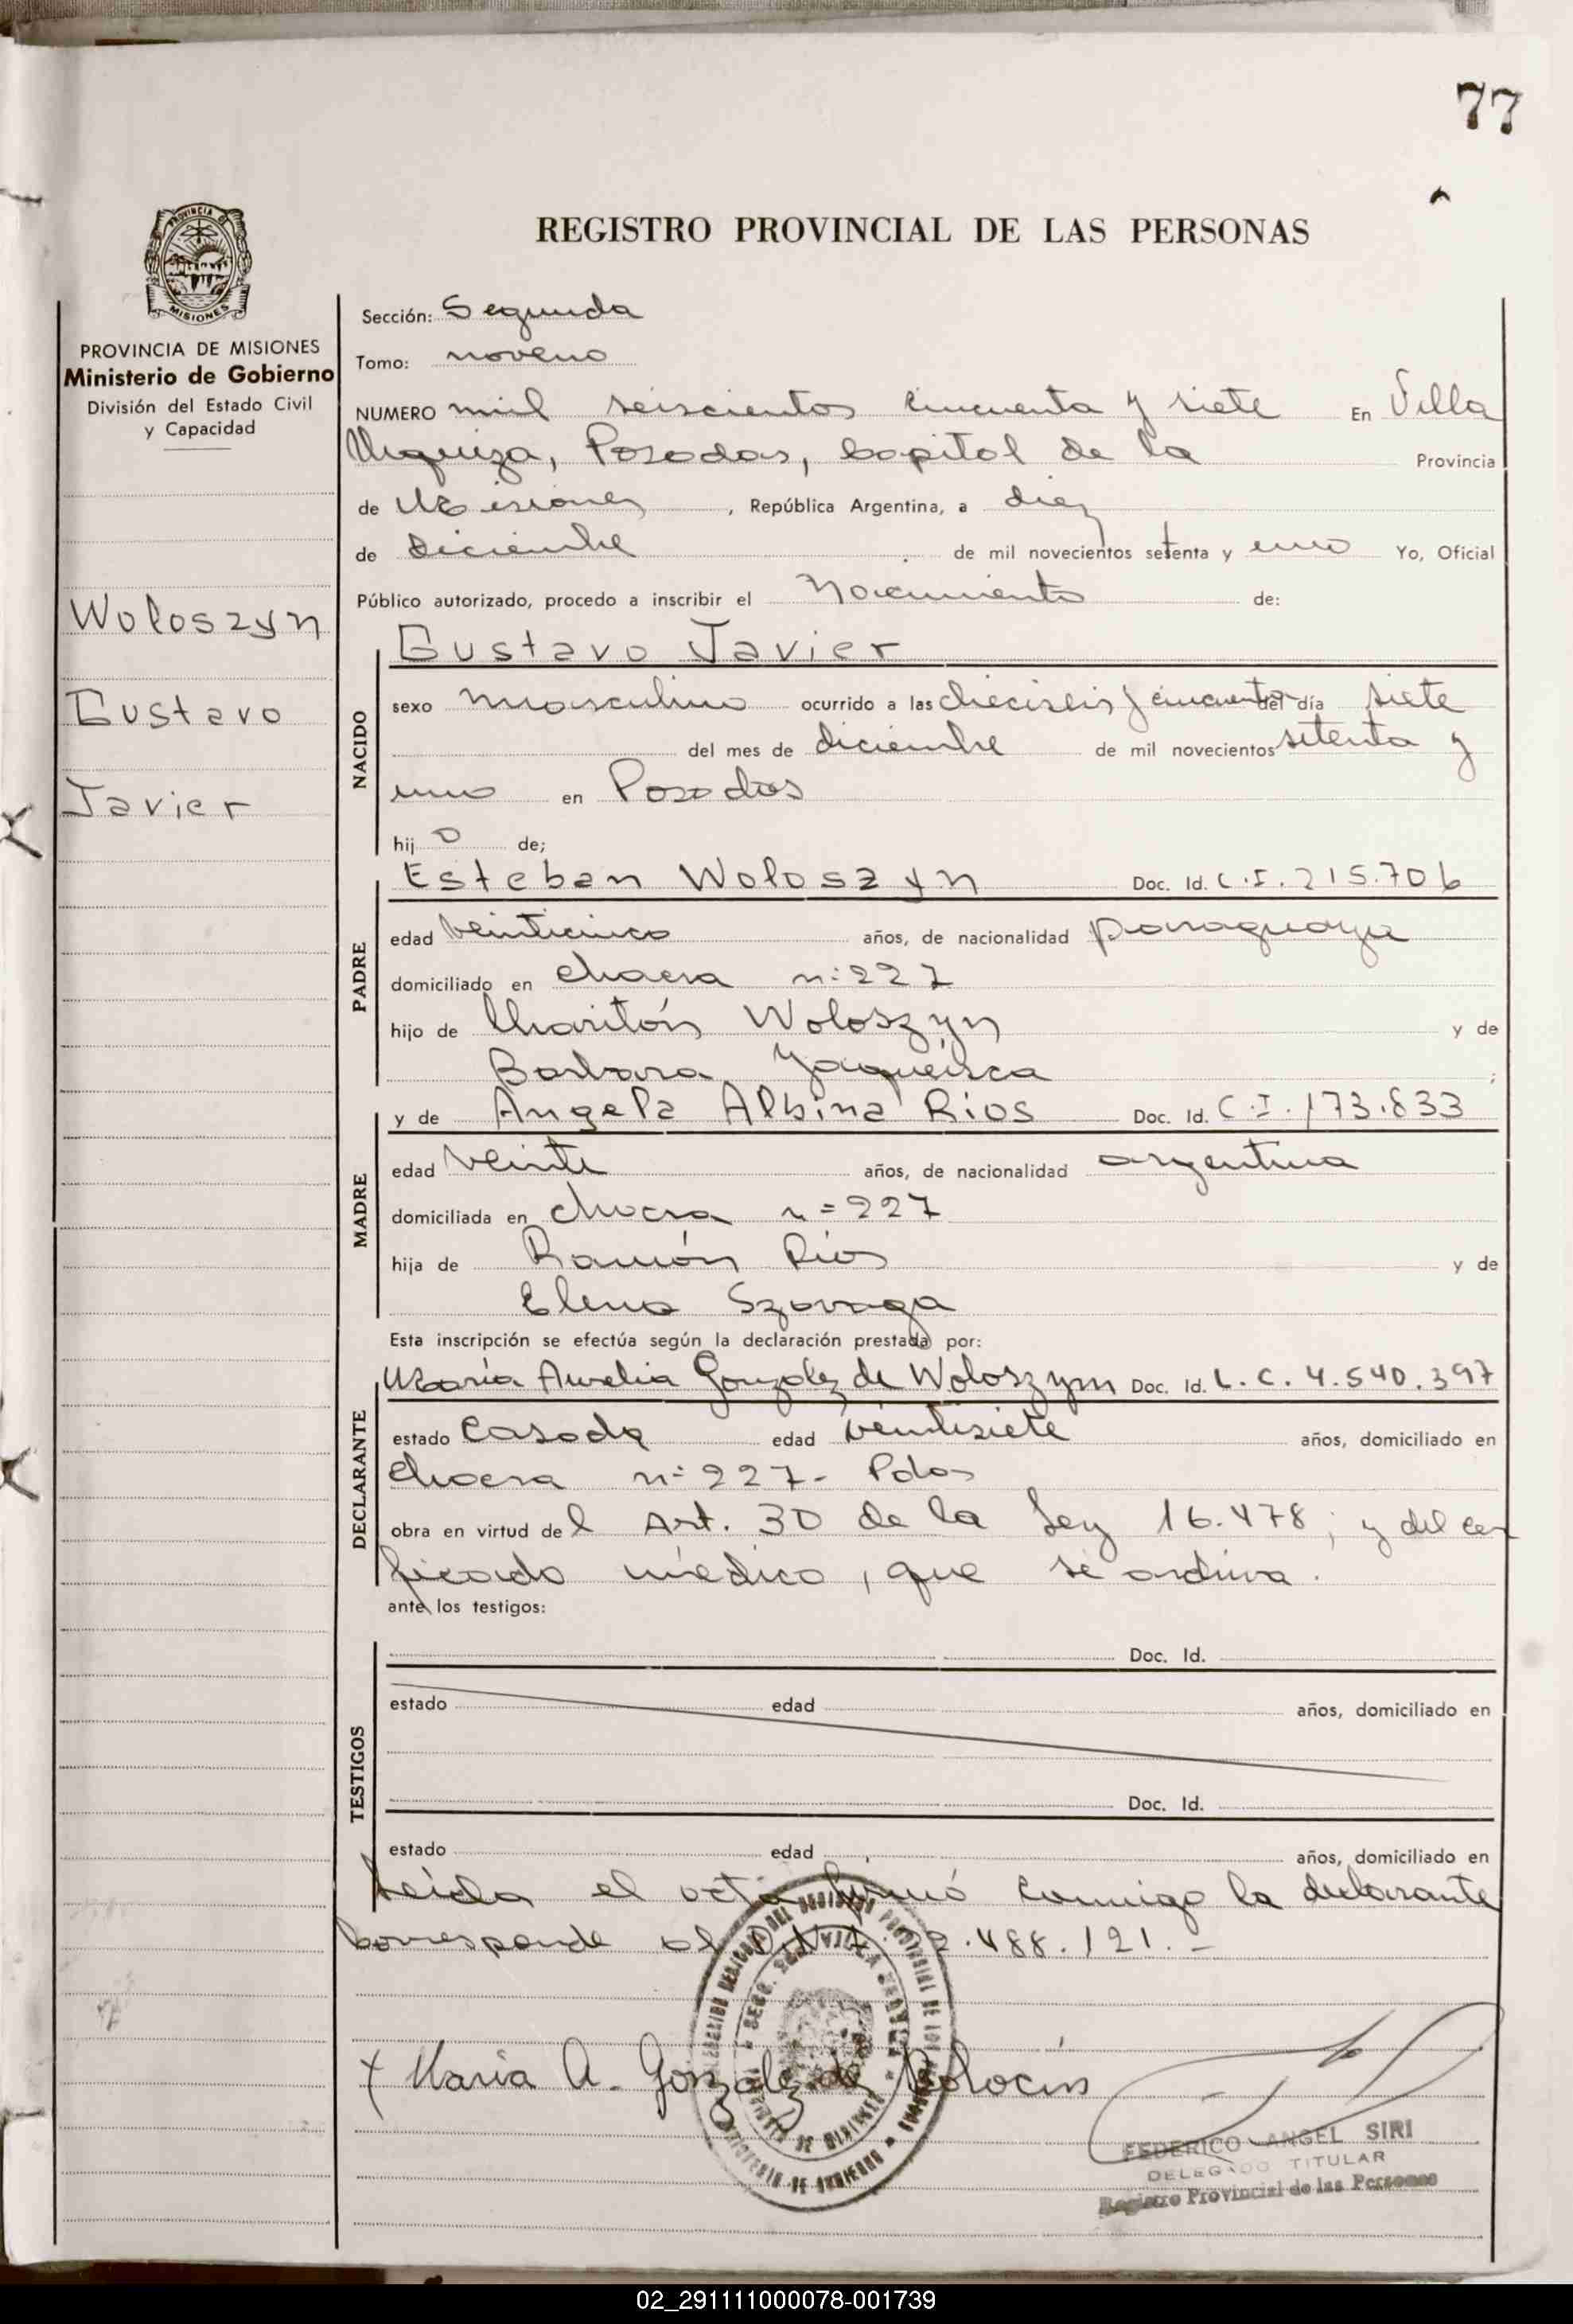 77
REGISTRO PROVINCIAL DE LAS PERSONAS
PROVINCIA DE MISIONES
Ministerio de Gobierno
División del Estado Civil
y Capacidad
Woloszyn
Gustavo
Javier
Sección: Segunda
Tomo: noveno
NUMERO mil seiscientos cincuenta y siete En Villa
Urquiza, Posadas, capital de la Provincia
de Misiones, República Argentina, a diez
de diciembre de mil novecientos setenta y uno Yo, Oficial
Público autorizado, procedo a inscribir el Nacimiento de:
Gustavo Javier
NACIDO
sexo masculino ocurrido a las dieciseis y cincuenta del día siete
del mes de diciembre de mil novecientos setenta y
uno en Posadas
hijo de;
Esteban Woloszyn Doc. Id. C.I. 215.706
PADRE
edad veinticinco años, de nacionalidad paraguaya
domiciliado en chacra n:227
hijo de Charitón Woloszyn y de
Barbara ;
y de Angela Albina Rios Doc. Id. C.I. 173.833
MADRE
edad veinte años, de nacionalidad argentina
domiciliada en chacra n=227
hija de Ramón Rios y de
Elena Szovaga
Esta inscripción se efectúa según la declaración prestada por:
María Aurelia Gonzalez de Woloszyn Doc. Id. L.C. 4.540.397
DECLARANTE
estado casada edad veintisiete años, domiciliado en
chacra n=227- Pdas
obra en virtud del Art. 30 de la Ley 16.478; y del cer
ficado médico, que se archiva.
ante los testigos:
Doc. Id.
TESTIGOS
estado edad años, domiciliado en
Doc. Id.
estado edad años, domiciliado en
Leída el acta firmó conmigo la declarante
Corresponde al D.N.I. 22.488.121.-
x Maria A. Gonzalez de Bolocin
FEDERICO ANGEL SIRI
DELEGADO TITULAR
Registro Provincial de las Personas
02_291111000078-001739